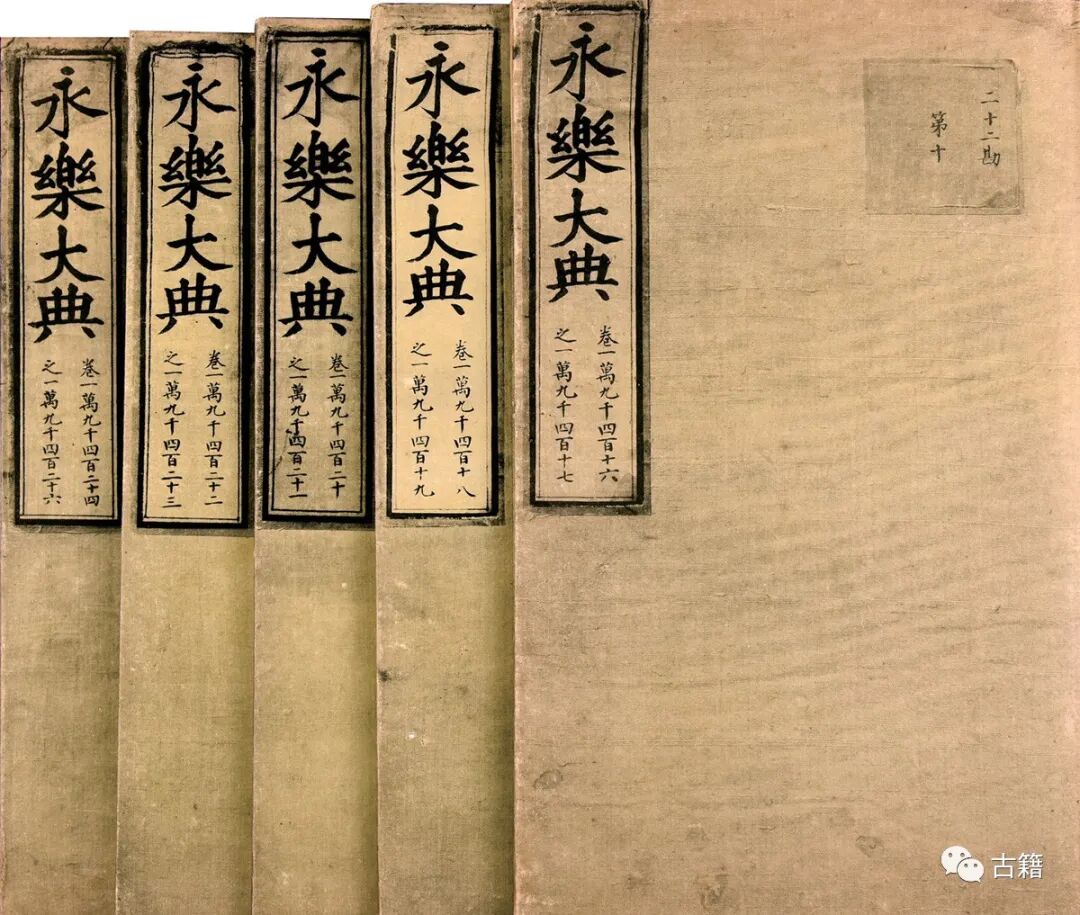 二十二勘
第十
永樂大典
卷一萬九千四百十六
之一萬九千四百十七
永樂大典
卷一萬九千四百十八
之一萬九千四百十九
永樂大典
卷一萬九千四百二十
之一萬九千四百二十一
永樂大典
卷一萬九千四百二十二
之一萬九千四百二十三
永樂大典
卷一萬九千四百二十四
之一萬九千四百二十六
古籍